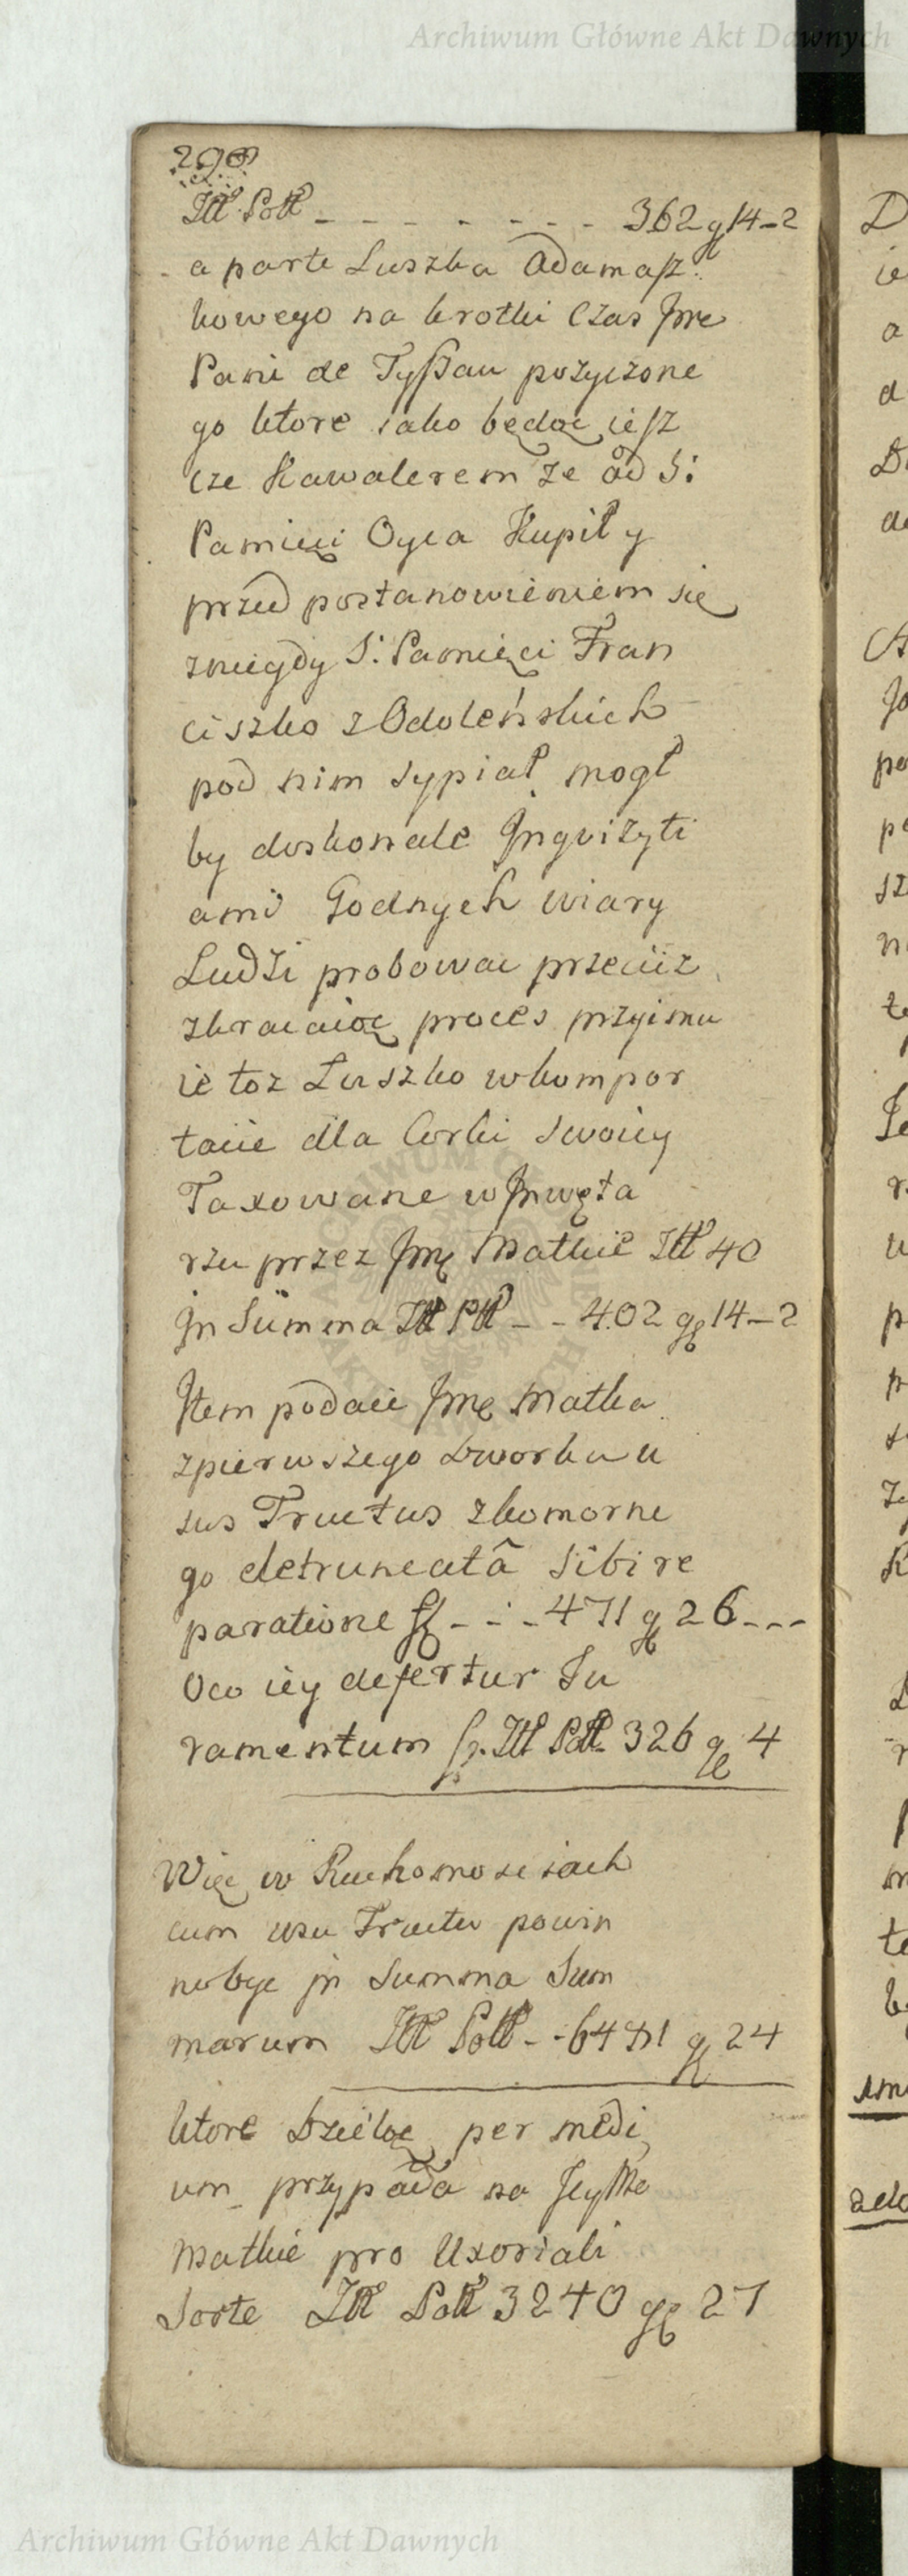 Archiwum Główne Akt Dawnych
298
Złł Poll - - - - - - - - 362 g 14-2
a parte Luszka Adamasz
kowego na krotki Czas Jmc
Pani de Tyszau pozyczone
go ktore iako będąc iesz
cze Kawalerem ze od S:
Pamięci Oyca Kupił y
przed postanowieniem się
zniegdy S: Pamięci Fran
ciszką z Odoleńskich
pod nim sypiał mogł
by doskonale Jnqvizyti
ami Godnych wiary
Ludzi probowac przeciiz
zkracaiąc proces przyimu
ie toz Luszko wkompor
tacie dla Corki swoiey
Taxowane w Jnwęta
rzu przez Jmę Matkie Złł 40
Jn Summa Złł Pll - - 402 g 14-2
Jtem podaie Jmę Matka
zpierwszego Dworku u
sus Fructus zkomorne
go detruncatâ sibi re
paratione fl - - - 471 g 26 - - -
Oco iey defertur Ju
ramentum Złł Poll 326 g 4
Więc w Ruchomosciach
cum usu Fructu powin
no byc jn Summa Sum
marum Złł Poll - - 6481 g 24
ktore Dzieląc per medi
um przypada na Jeymc
Matkie pro Uxoriali
Sorte Złł Poll 3240 g 27
Archiwum Główne Akt Dawnych